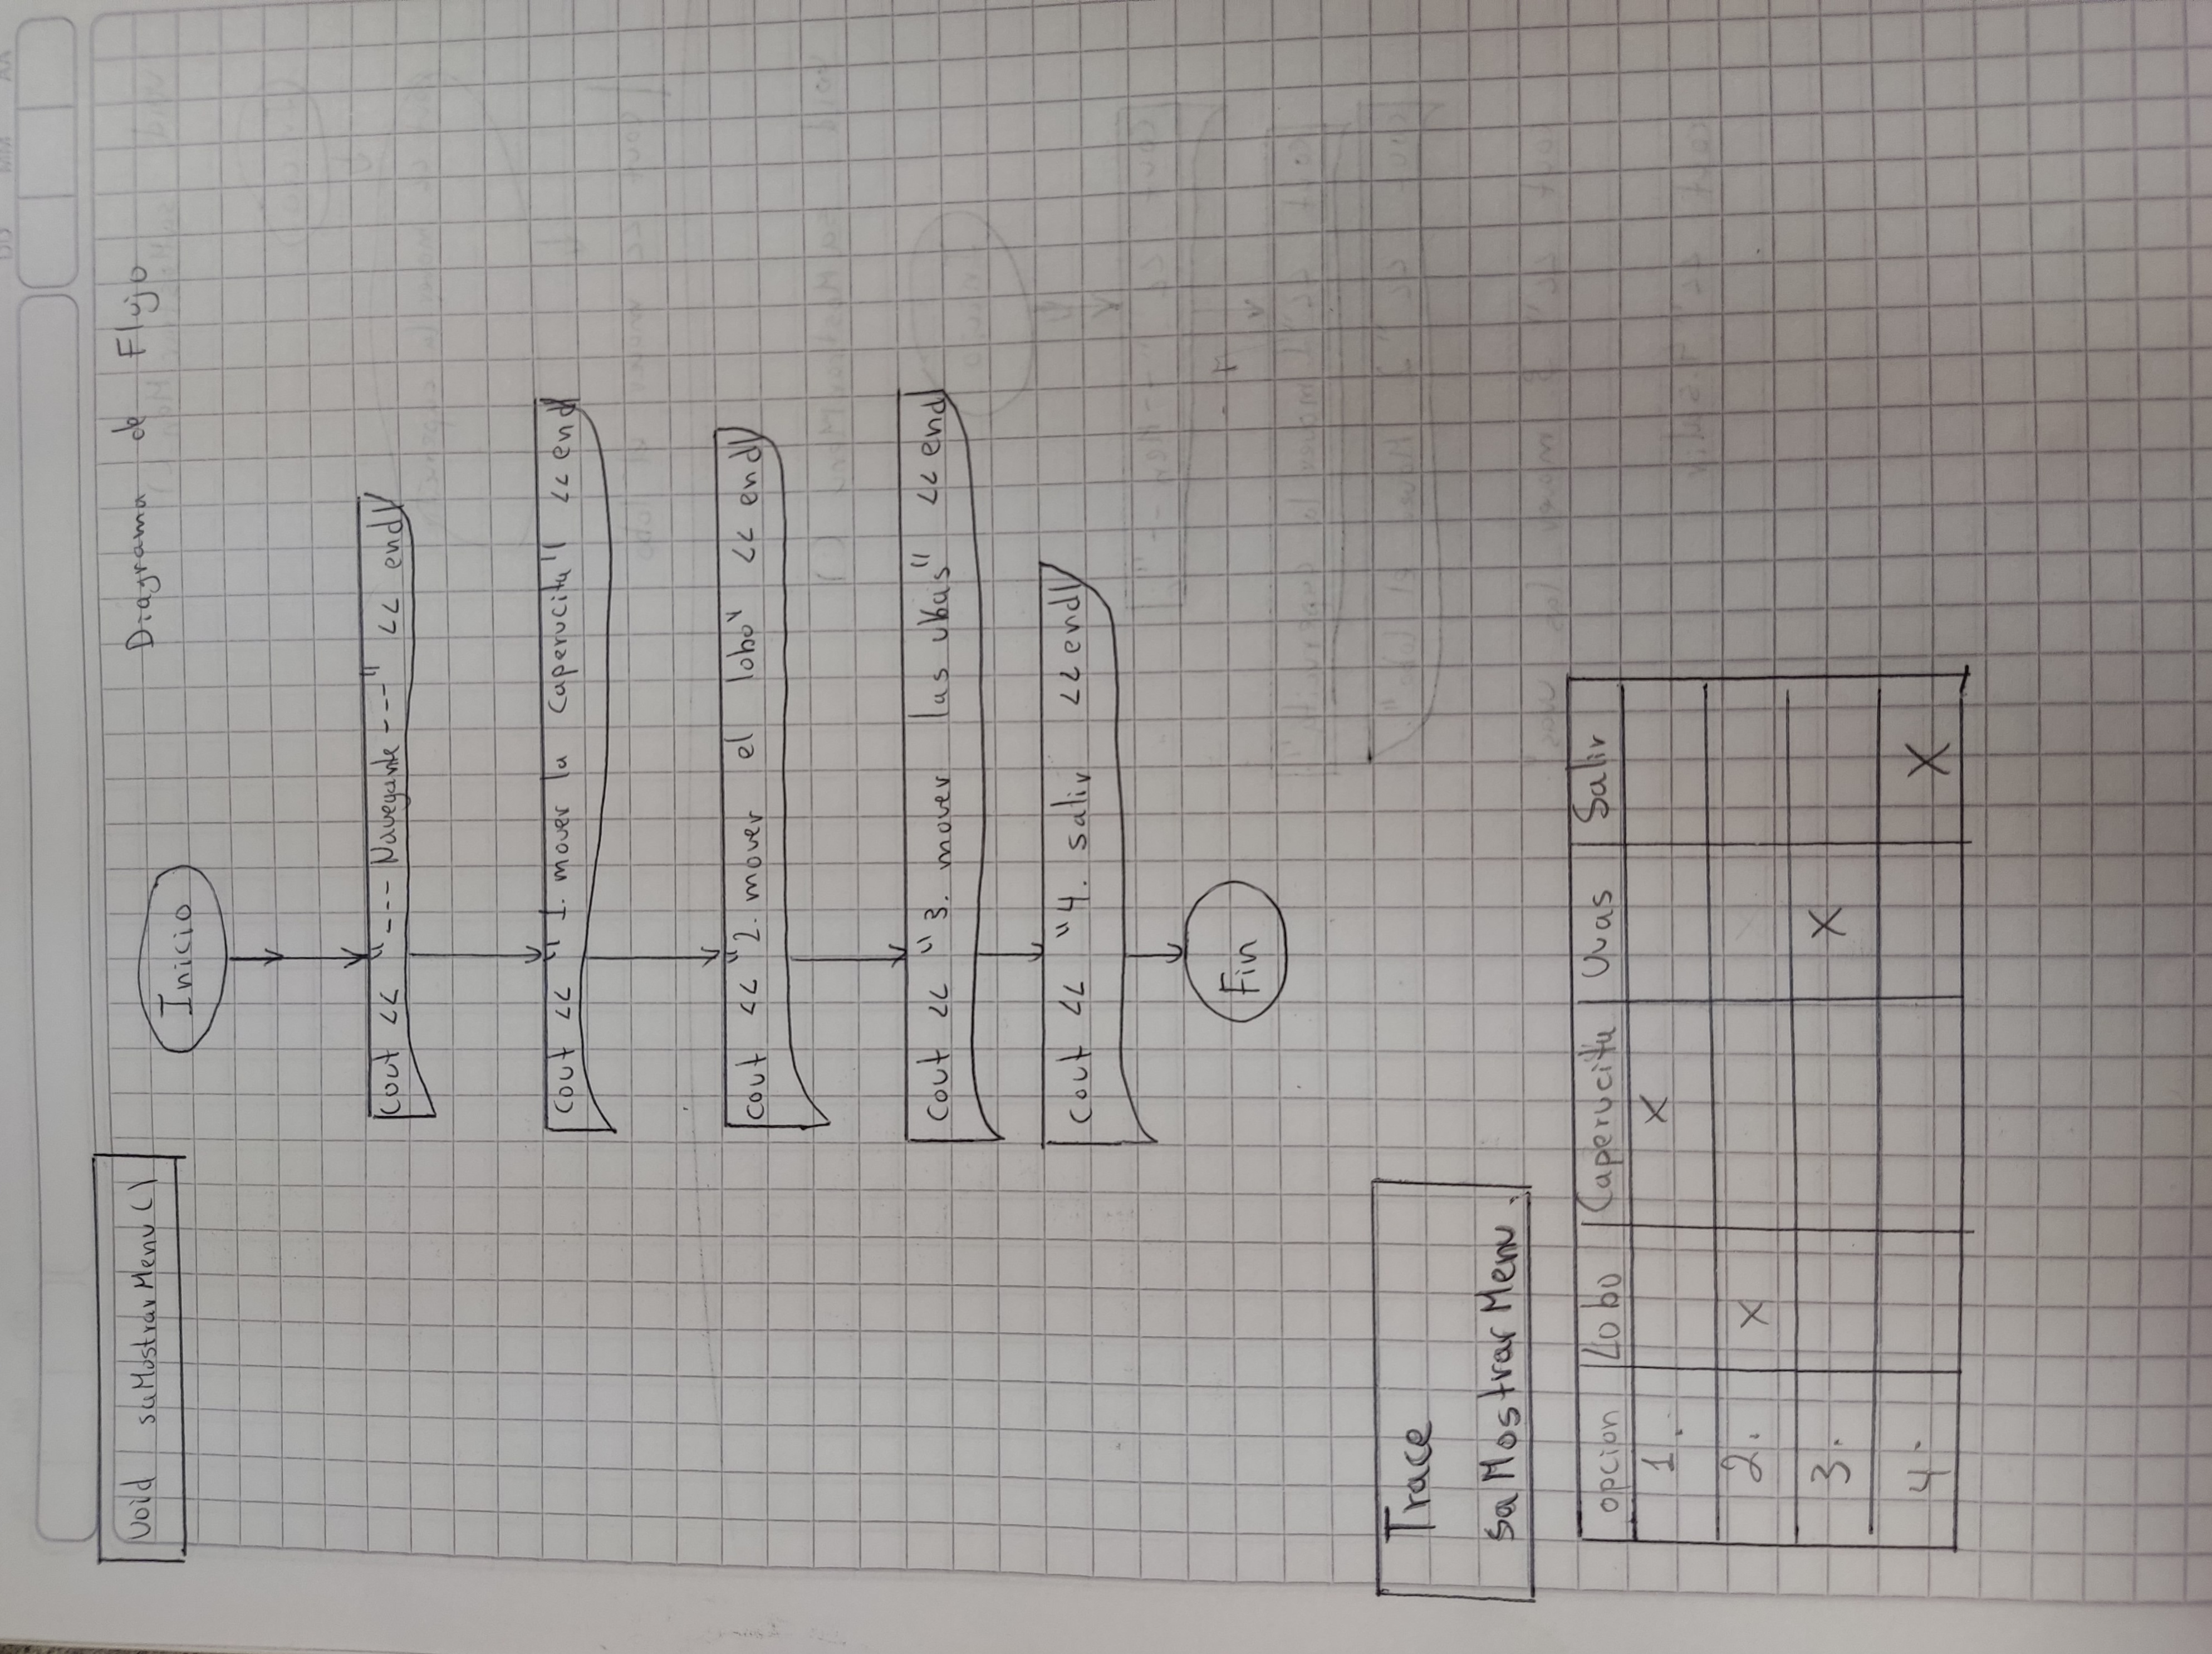 void saMostrarMenu()
Diagrama de Flujo
Inicio
cout << "--- Navegante ---" << endl
cout << "1. mover la Caperucita" << endl
cout << "2. mover el lobo" << endl
cout << "3. mover las uvas" << endl
cout << "4. salir << endl
Fin
Trace
saMostrarMenu.
opcion Lobo Caperucita Uvas Salir
1. X
2. X
3. X
4. X